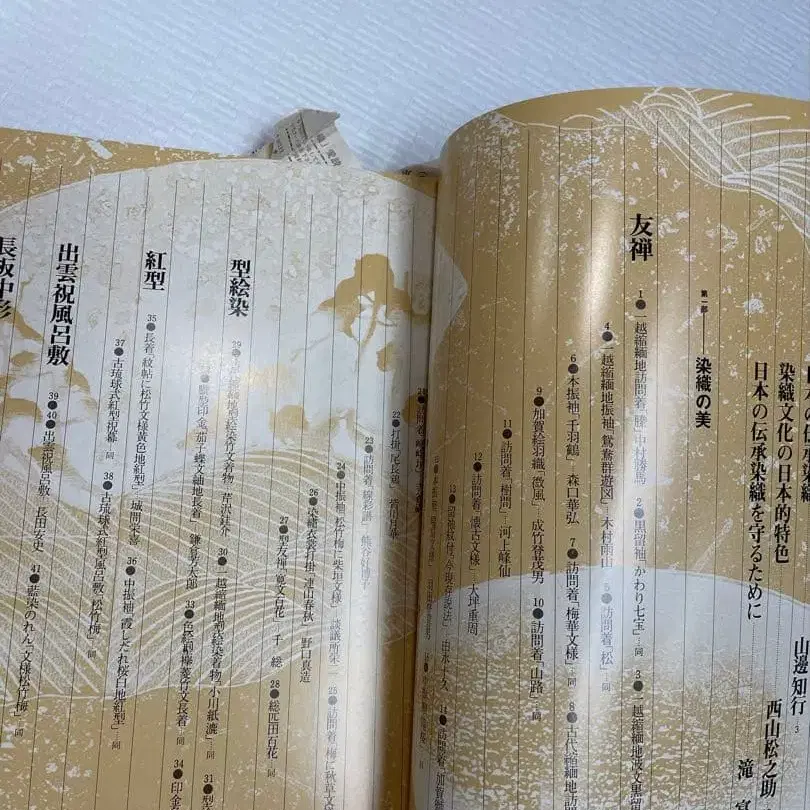 染織文化の日本的特色
日本の伝承染織を守るために
山邊知行 3
西山松之助
滝
第一部――染織の美
友禅
1●一越縮緬地訪問着「滕」中村勝馬
2●黒留袖「かわり七宝」…同
3●一越縮緬地波文黒留
4●一越縮緬地振袖「鴛鴦群遊図」木村雨山
5●訪問着「松」…同
6●本振袖「千羽鶴」森口華弘
7●訪問着「梅華文様」…同
8●古代縮緬地訪問
9●加賀絵羽織「微風」成竹登茂男
10●訪問着「山路」…同
11●訪問着「樹間」…河上峰仙
12●訪問着「懐古文様」…大坪重周
13●
14●訪問着「加賀
22●打掛「尾長鶏」皆川月華
23●訪問着「線彩譜」熊谷好博子
24●中振袖「松竹梅に柴垣文様」談議所栄二
25●訪問着「梅に秋草文様
26●染繡衣裳打掛「連山春秋」野口真造
27●型友禅「寛文百花」千総
28●総疋田百花…同
型絵染
29●
30●一越縮緬地型絵染着物 小川紙漉」…同
31●型
33●
34●印金
紅型
35●長着「紋帖に松竹文様黄色地紅型」城間栄喜
36●中振袖「霞しだれ桜白地紅型」…同
37●古琉球式紅型祝幕…同
38●古琉球式紅型風呂敷「松竹梅」…同
出雲祝風呂敷
39●40●出雲祝風呂敷 長田安史
41●藍染のれん「文様松竹梅」…同
長板中形